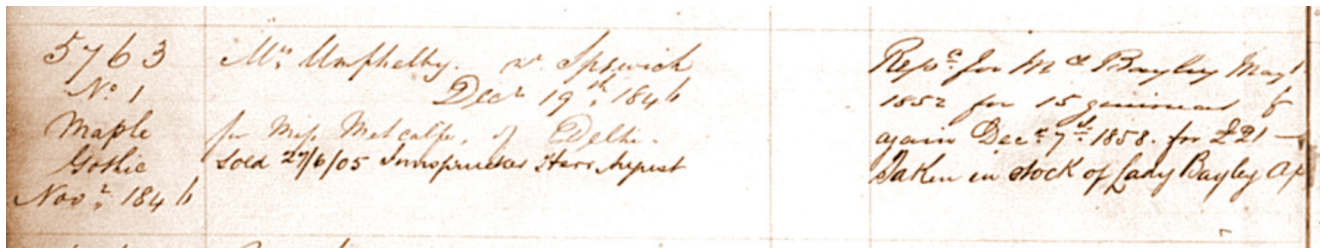 5763
No. 1
Maple
Gothic
Novr. 1846
Mrs Umphelby. nr. Ipswich
Decr 19th, 1846
for Miss Metcalfe, of Delhi.
Sold 27/6/05 Innspruecker Herr August
Repd. for Mrs Bayley May 1
1852 for 15 guineas &
again Decr. 7th. 1858. for £21 –
Taken in stock of Lady Bayley Ap